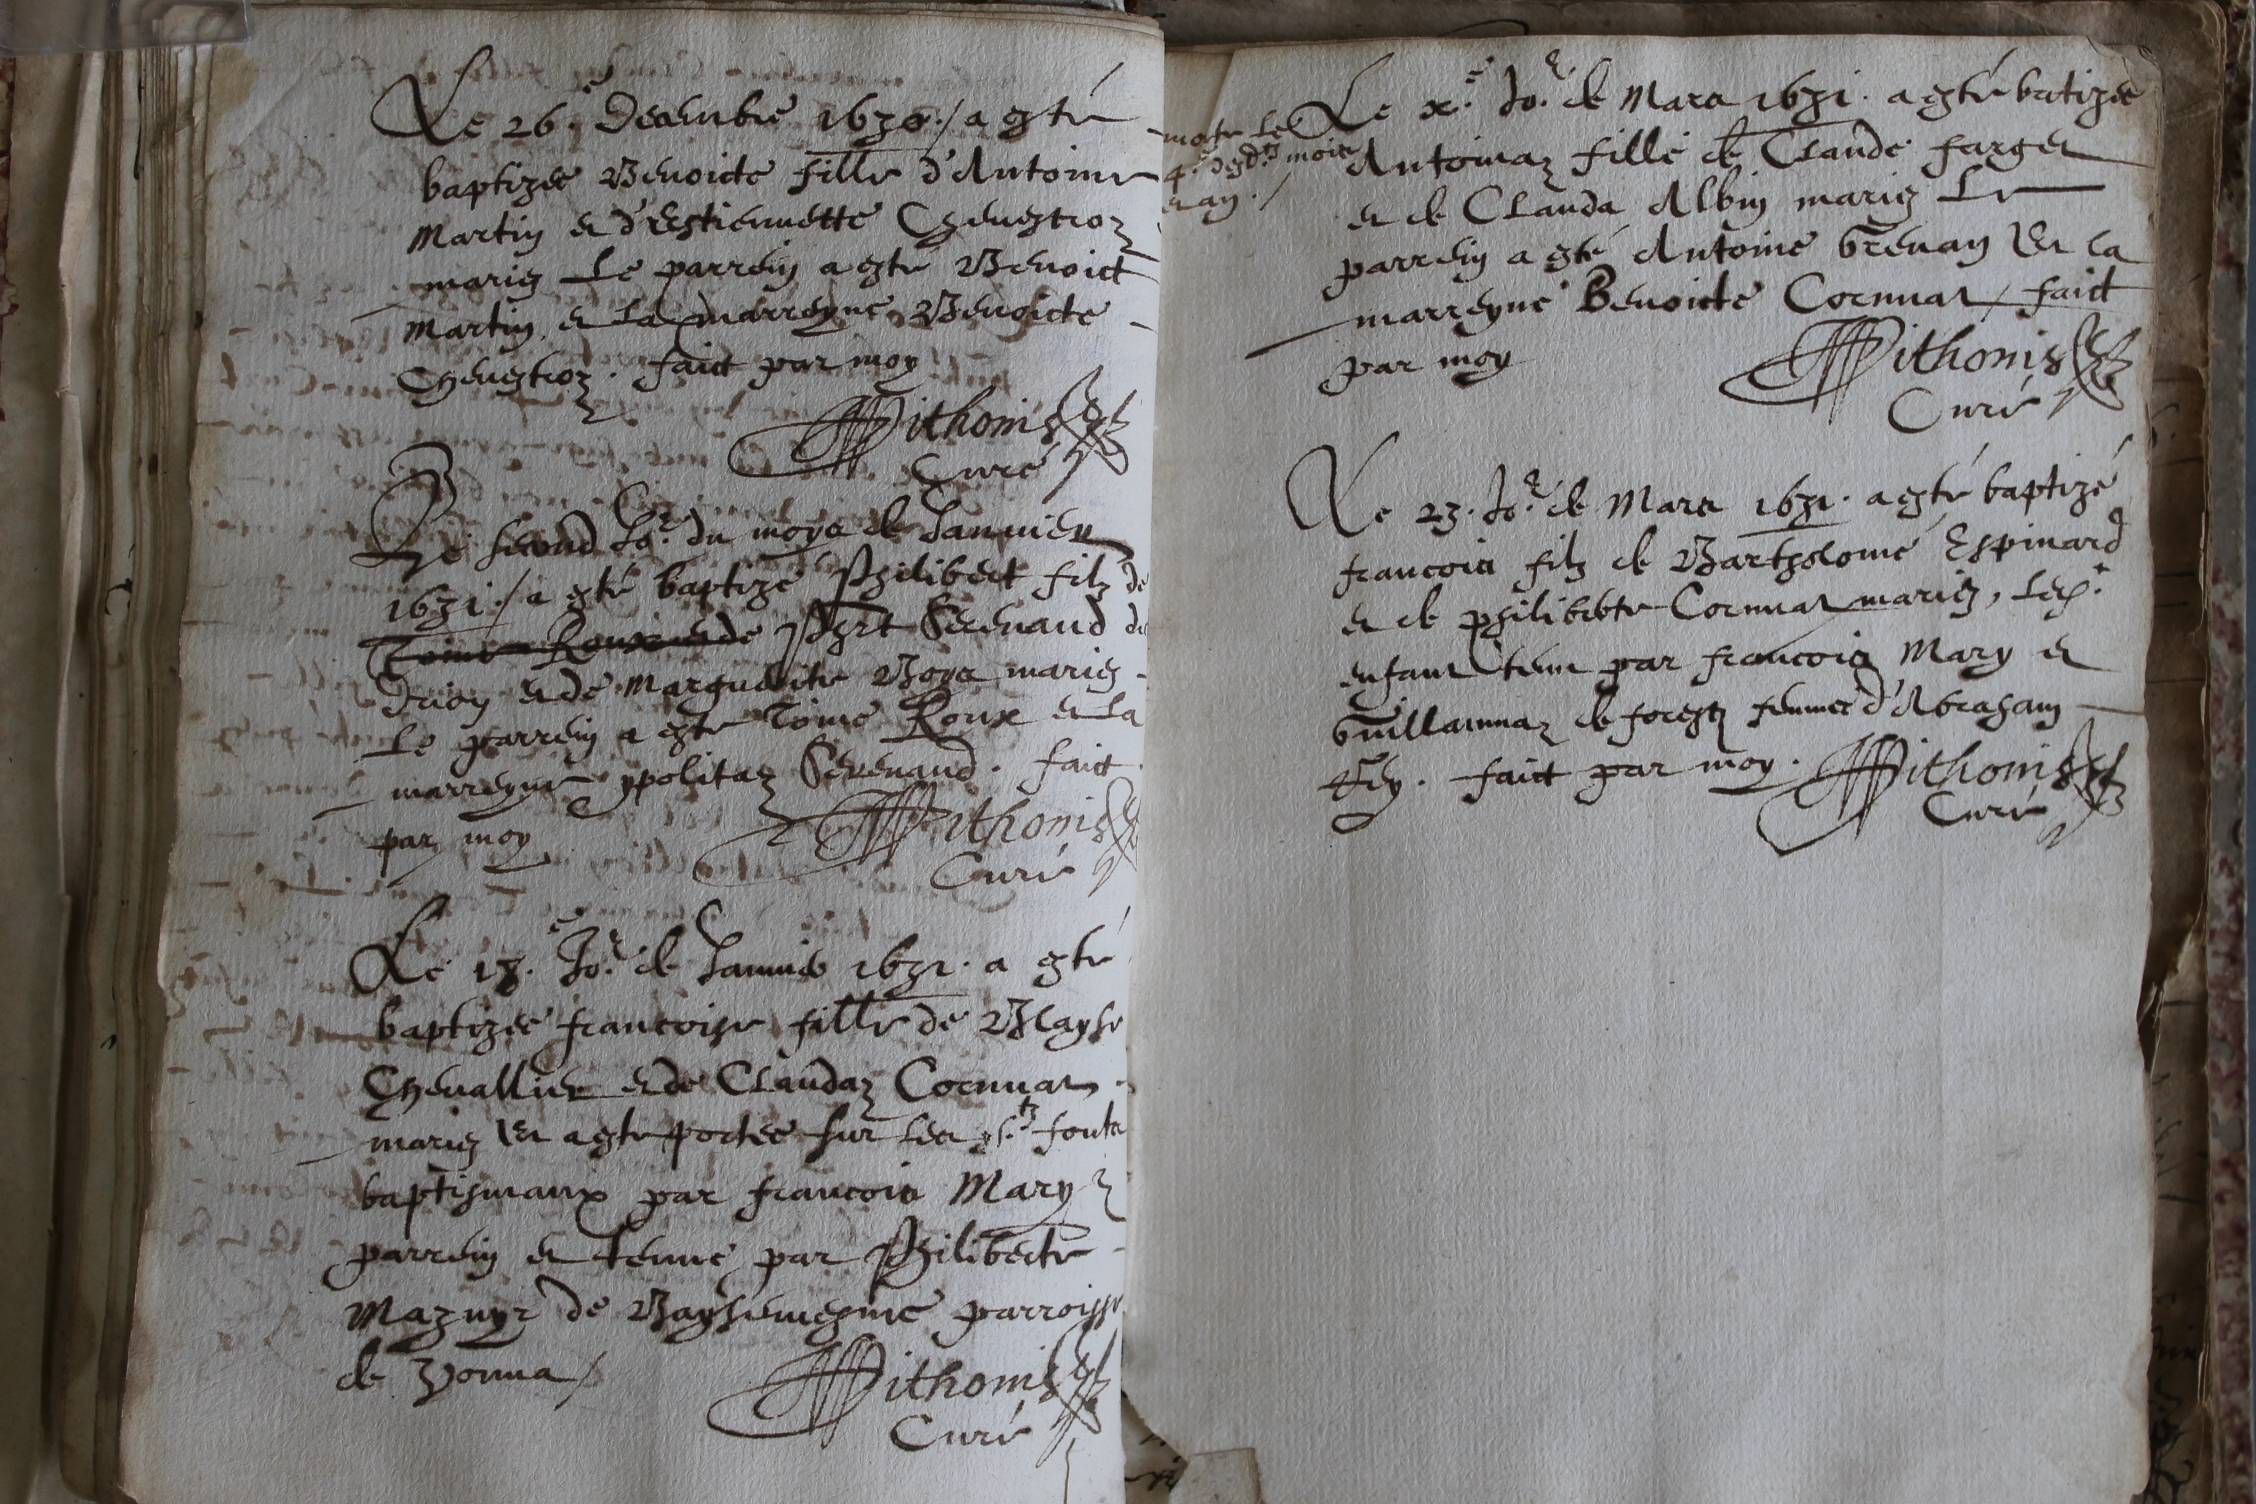 Le 26.e Decembre 1630 / a esté
baptizee Benoicte fille d'Antoine
Martin et d'Estiennette Chevestroz
mariez Le parrein a esté Benoict
Martin et la marreyne Benoicte
Chevestroz. faict par moy
Pithonis
Curé
Le second Jo.r du moys de Januier
1631 / a esté baptizé Philibert filz de
Tome Roux et de Phirt Serenaud de
et de Marguerite Boys mariez
Le parrein a esté Tome Roux et la
marreyne ypolitaz Serenaud. faict
par moy
Pithonis
Curé
Le 18.e Jo.r de Januier 1631. a esté
baptizee francoise fille de Blayse
Chevallier et de Claudaz Cornuat
mariez Et a esté portee sur les s.tz fonts
baptismaux par francois Mary
parrein et tenue par Philiberte
Mazuyr de parroisse
de Yonna /
Pithonis
Curé
morte le
4.e desd.tz mois
et an. /
Le x.e Jo.r de Mars 1631. a esté batizee
Antoinaz fille de Claude farges
et de Clauda Albin mariez Le
parrein a esté Antoine Grenan Et la
marreyne Benoicte Cornuat / faict
par moy
Pithonis
Curé
Le 23. Jo.r de Mars 1631. a esté baptizé
francois filz de Bartholomé Espinard
et de philiberte Cornuat mariez, led.t
enfant tenu par francois Mary et
Guillaumaz de forestz femme d'Abraham
Fey. faict par moy. Pithonis
Curé